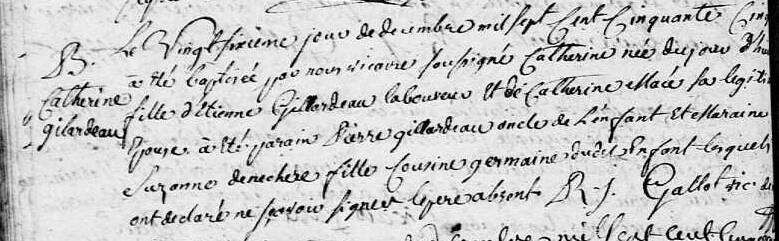 B.
Catherine
gilardeau
Le Vingt sixieme jour de decembre mil sept Cent Cinquante Cinq
a été baptisée par nous vicaire soussigné Catherine née du jour
fille d'étienne Gillardeau laboureur Et de Catherine Macé sa legiti
Epouse à été parain Pierre gillardeau oncle de L'enfant Et Maraine
Suzanne denechere fille Cousine germaine dudit Enfant lesquels
ont declaré ne sçavoir signer le pere absent R. J. Gallot vic.